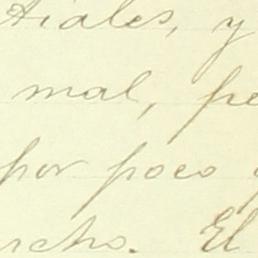 tiales, y
mal, pe
por poco
rcho. El